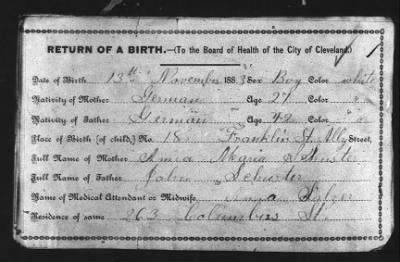 RETURN OF A BIRTH.—(To the Board of Health of the City of Cleveland.)
Date of Birth 13th November 1883 Sex Boy Color white
Nativity of Mother German Age 27 "
Nativity of Father German Age 42 "
Place of Birth (of child,) No. 18 Franklin St. Ally Street,
Full Name of Mother Anna Maria Schuster
Full Name of Father John Schuster
Name of Medical Attendant or Midwife, Anna
Residence of same 263 Columbus St.